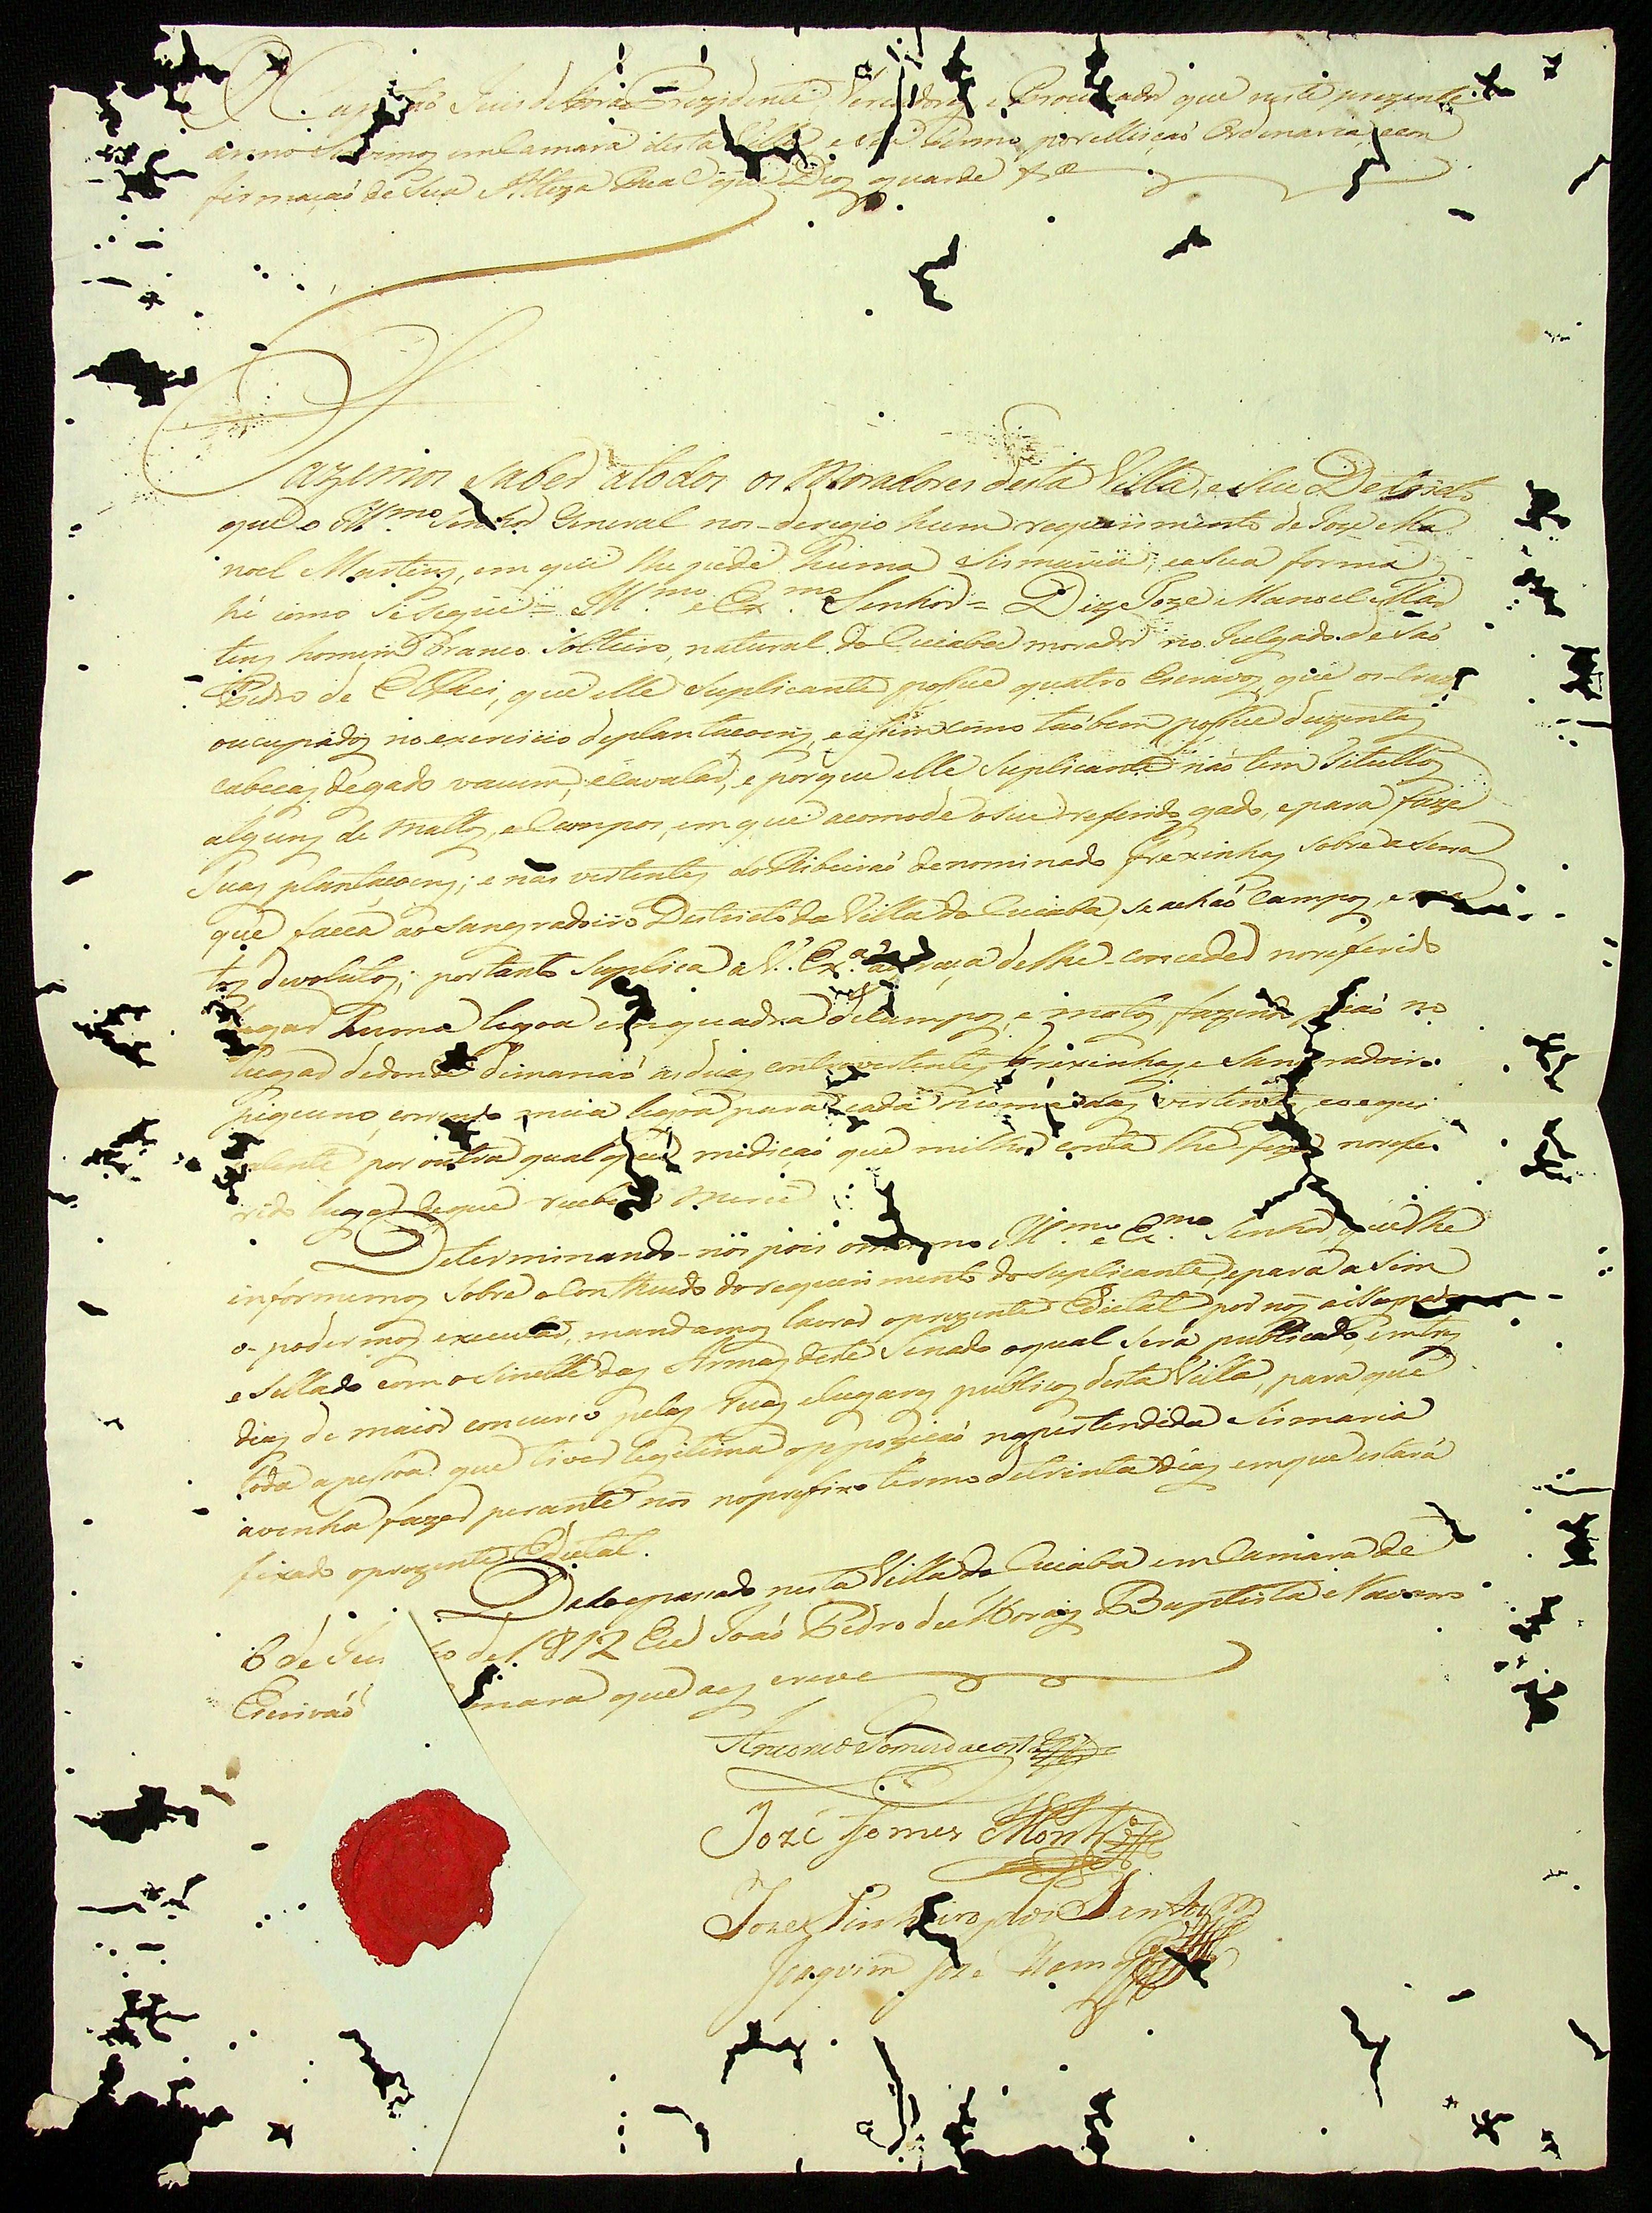 Juis de fora Prezidente, Vereadores e Procurador que neste prezente
anno Servimos em Camara desta Villa, e seu termo por elleiçaõ Ordinaria, e con
firmaçaõ de Sua Alteza Real que Deos guarde &ª
Fazemos saber a todos os Moradores desta Villa, e seu Destricto
que o Illmo. Senhor General nos-deregio hum requerimento de Joze Ma
noel Martins, em que lhe pede huma Sismaria, e a sua forma
hé como se segue = Illmo. e Exmo. Senhor = Diz Joze Manoel Mar
tins homem branco Solteiro, natural do Cuiabá morador no Julgado de Saõ
Pedro de ElRei, que elle Suplicante possue quatro Escravos que os-traz
oucupados no exercicio de plantacoens, e assim como taõbem possue duzentas
cabeças de gado vacum, e Cavalar, e porque elle Suplicante naõ tem Titullos
alguns de Mattos, e Campos, em que acomode o seu referido gado, e para fazer
Suas plantacoens; e nas vertentes do Ribeiraõ denominado Frexinhas sobre a Serra
que facea ao Sangradoiro Destricto da Villa do Cuiabá, se achaõ Campos, e ma
tos devolutos; portanto Suplica a V. Exª. a graça de lhe-conceder no referido
lugar huma legoa em quadra de Campos, e matos, fazendo piaõ no
lugar dedonde dimanaõ as duas contravertentes Frexinhas e Sangradoiro
piqueno, correndo meia legoa para cada huma das vertentes, e o equi
valente por outra qualquer mediçaõ que milhor conta lhe fizer no refe
rido lugar de que receberá Merce
Determinando-nos pois o mesmo Illmo. e Exmo. Senhor, que lhe
informemos sobre o Contheudo do requerimento do suplicante, e para a sim
o-podermos executar, mandamos lavrar o prezente Edictal por nos assignado
e Sellado com o Sinette das Armas deste Senado o qual será publicado, em tres
dias de maior concurso pelas ruas e lugares publicos desta Villa, para que
toda a pessoa que tiver legitima oppoziçaõ na pertendida Sismaria
a venha fazer perante nos no prefixo termo de trinta dias em que estará
fixado o prezente Edictal.
Dado e passado nesta Villa do Cuiabá em Camara de
6 de de 1812 Eu Joaõ Pedro de Moraes Baptista e Navarro
Escrivaõ mara que as escrevi
Jozé Gomes Mont
Joze Pinheiro dos Santos
Joaquim Joze